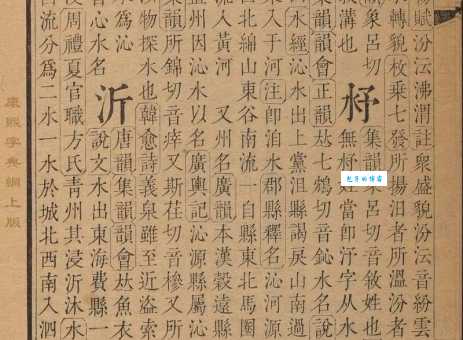 賦汾沄沸渭註衆盛貌汾沄音紛雲
水轉貌枚乗七發所揚汨者所溫汾者
𣴎呂切
杍集韻 呂切音敘姓也
無杍 當卽汿字从水
韻會正韻𠀤七鴆切音鈊水名說
水經沁水出上黨沮縣謁戾山南過
東入于河註卽洎水郡縣釋名沁河源
出沁綿山東谷南流一自縣東北馬圈
流入黃河 又州名廣韻本漢穀遠縣
州因沁水以名廣輿記沁源縣屬沁
集韻所錦切音痒又斯荏切音槮又所
物探水也韓愈詩義泉雖至近盜索
水爲沁
心水名
沂說文水出東海費縣
唐韻集韻韻會𠀤魚衣
周禮夏官職方氏靑州其浸沂沭水
西流分爲二水一水於城北西南入泗
康熙字典網上版